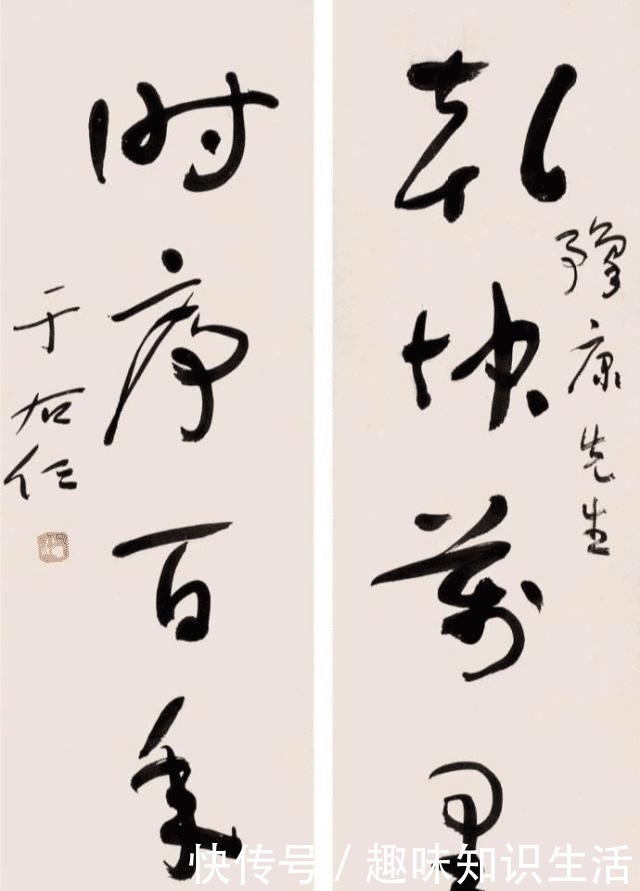 乾坤萬里
豫康先生
時序百年
于右任
快传号/趣味知识生活